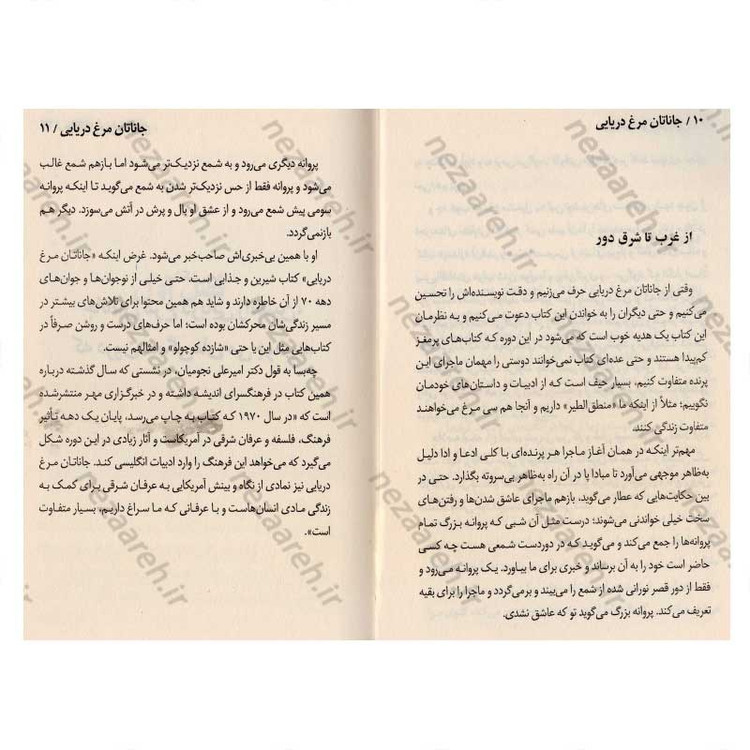 ۱۰ / جاناتان مرغ دریایی
از غرب تا شرق دور
وقتی از جاناتان مرغ دریایی حرف می‌زنیم و دقت نویسنده‌اش را تحسین
می‌کنیم و حتی دیگران را به خواندن این کتاب دعوت می‌کنیم و به نظرمان
این کتاب یک هدیه خوب است که می‌شود در این دوره که کتاب‌های پرمغز
کم‌پیدا هستند و حتی عده‌ای کتاب نمی‌خوانند دوستی را مهمان ماجرای این
پرنده متفاوت کنیم، بسیار حیف است که از ادبیات و داستان‌های خودمان
نگوییم؛ مثلاً از اینکه ما «منطق‌الطیر» داریم و آنجا هم سی مرغ می‌خواهند
متفاوت زندگی کنند.
مهم‌تر اینکه در همان آغاز ماجرا هر پرنده‌ای با کلی ادعا و ادا دلیل
به‌ظاهر موجهی می‌آورد تا مبادا پا در آن راه به‌ظاهر بی‌سروته بگذارد. حتی در
بین حکایت‌هایی که عطار می‌گوید، بازهم ماجرای عاشق شدن‌ها و رفتن‌های
سخت خیلی خواندنی می‌شوند؛ درست مثل آن شبی که پروانه بزرگ تمام
پروانه‌ها را جمع می‌کند و می‌گوید که در دوردست شمعی هست چه کسی
حاضر است خود را به آن برساند و خبری برای ما بیاورد. یک پروانه می‌رود و
فقط از دور قصر نورانی شده از شمع را می‌بیند و برمی‌گردد و ماجرا را برای بقیه
تعریف می‌کند. پروانه بزرگ می‌گوید تو که عاشق نشدی.
جاناتان مرغ دریایی / ۱۱
پروانه دیگری می‌رود و به شمع نزدیک‌تر می‌شود اما بازهم شمع غالب
می‌شود و پروانه فقط از حس نزدیک‌تر شدن به شمع می‌گوید تا اینکه پروانه
سومی پیش شمع می‌رود و از عشق او بال و پرش در آتش می‌سوزد. دیگر هم
بازنمی‌گردد.
او با همین بی‌خبری‌اش صاحب‌خبر می‌شود. غرض اینکه «جاناتان مرغ
دریایی» کتاب شیرین و جذابی است. حتی خیلی از نوجوان‌ها و جوان‌های
دهه ۷۰ از آن خاطره دارند و شاید هم همین محتوا برای تلاش‌های بیشتر در
مسیر زندگی‌شان محرکشان بوده است؛ اما حرف‌های درست و روشن صرفاً در
کتاب‌هایی مثل این یا حتی «شازده کوچولو» و امثالهم نیست.
چه‌بسا به قول دکتر امیرعلی نجومیان، در نشستی که سال گذشته درباره
همین کتاب در فرهنگسرای اندیشه داشته و در خبرگزاری مهر منتشرشده
است که «در سال ۱۹۷۰ که کتاب به چاپ می‌رسد، پایان یک دهه تأثیر
فرهنگ، فلسفه و عرفان شرقی در آمریکاست و آثار زیادی در این دوره شکل
می‌گیرد که می‌خواهد این فرهنگ را وارد ادبیات انگلیسی کند. جاناتان مرغ
دریایی نیز نمادی از نگاه و بینش آمریکایی به عرفان شرقی برای کمک به
زندگی مادی انسان‌هاست و با عرفانی که ما سراغ داریم، بسیار متفاوت
است».
nezaareh.ir